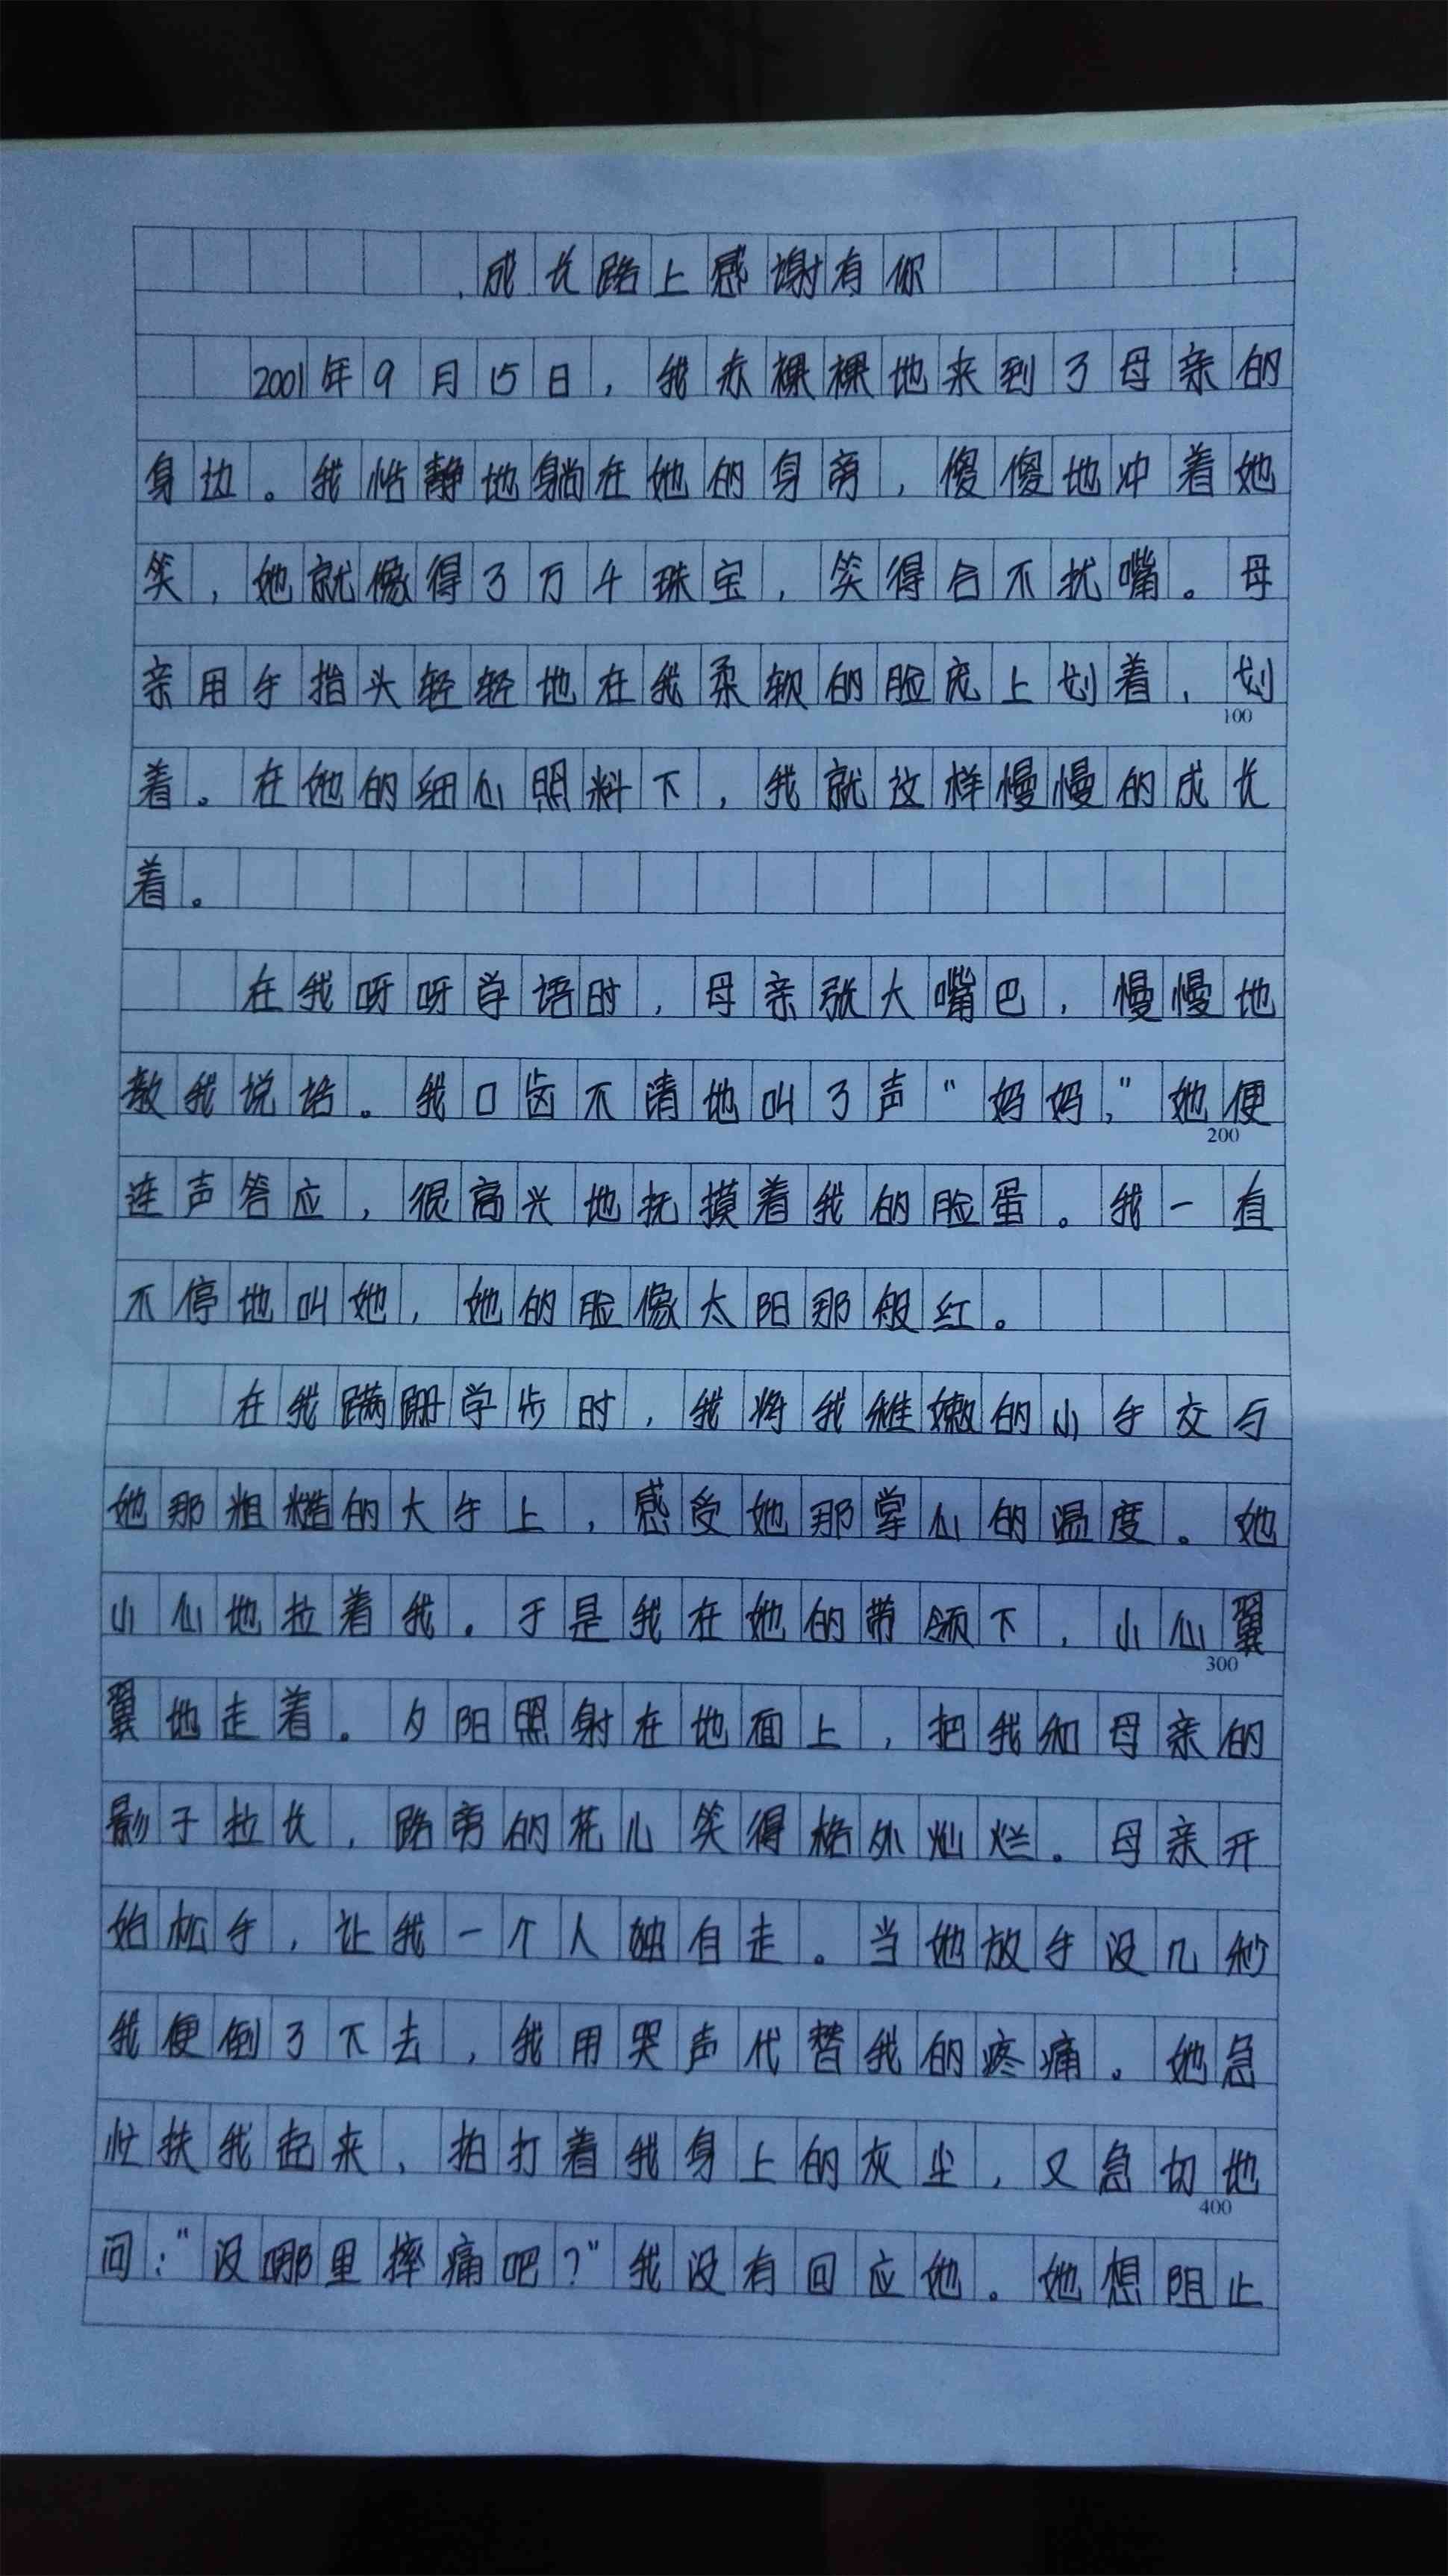 成长路上感谢有你
2001年9月15日，我赤裸裸地来到了母亲的
身边。我恬静地躺在她的身旁，傻傻地冲着她
笑，她就像得了万斗珠宝，笑得合不拢嘴。母
亲用手指头轻轻地在我柔软的脸庞上划着，划
100
着。在她的细心照料下，我就这样慢慢的成长
着。
在我呀呀学语时，母亲张大嘴巴，慢慢地
教我说话。我口齿不清地叫了声“妈妈，”她便
200
连声答应，很高兴地抚摸着我的脸蛋。我一直
不停地叫她，她的脸像太阳那般红。
在我蹒跚学步时，我将我稚嫩的小手交与
她那粗糙的大手上，感受她那掌心的温度。她
小心地拉着我。于是我在她的带领下，小心翼
300
翼地走着。夕阳照射在地面上，把我和母亲的
影子拉长，路旁的花儿笑得格外灿烂。母亲开
始松手，让我一个人独自走。当她放手没几秒
我便倒了下去，我用哭声代替我的疼痛。她急
忙扶我起来，拍打着我身上的灰尘，又急切地
400
问：“没哪里摔痛吧？”我没有回应她。她想阻止